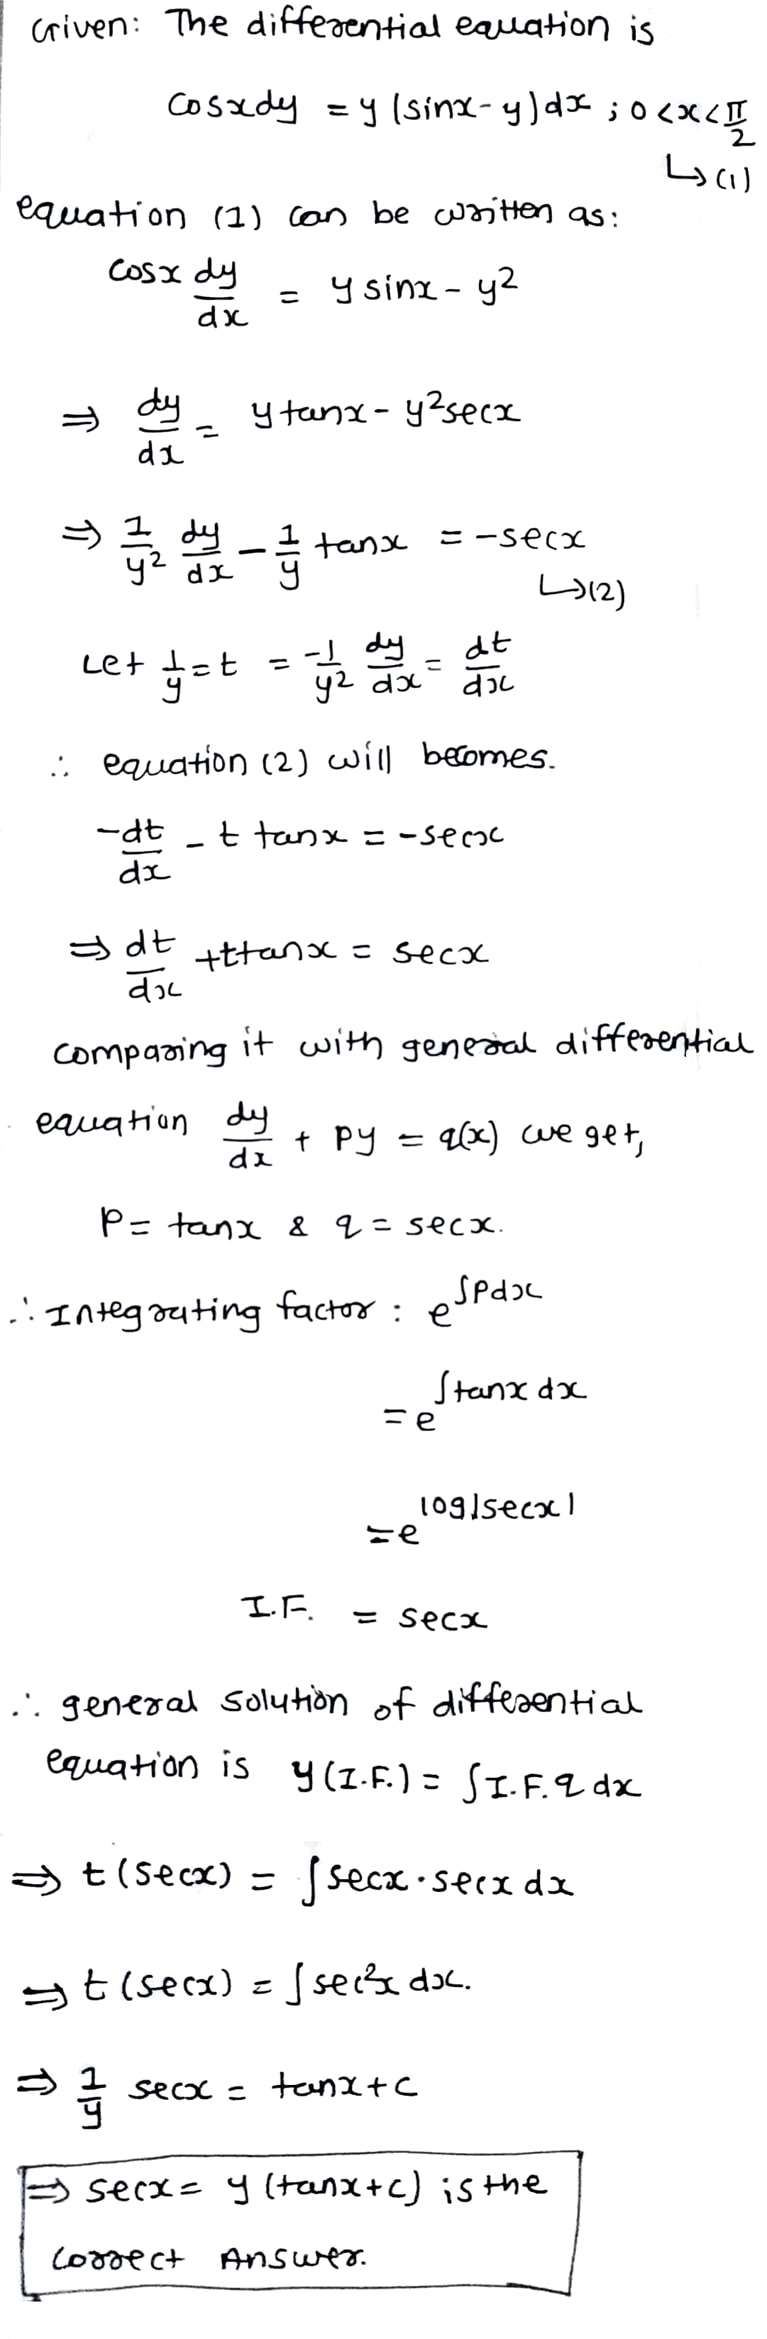 Given: The differential equation is
cosxdy = y(sinx-y)dx ; 0<x<π/2
↳(1)
equation (1) can be written as:
cosx dy/dx = y sinx - y²
⇒ dy/dx = y tanx - y²secx
⇒ 1/y² dy/dx - 1/y tanx = -secx
↳(2)
Let 1/y = t = -1/y² dy/dx = dt/dx
∴ equation (2) will becomes.
-dt/dx - t tanx = -secx
⇒ dt/dx +ttanx = secx
comparing it with general differential
equation dy/dx + py = q(x) we get,
P = tanx & q = secx.
∴ Integrating factor : e^∫Pdx
= e^∫tanx dx
= e^log|secx|
I.F. = secx
∴ general solution of differential
equation is y(I.F.) = ∫I.F. q dx
⇒ t(secx) = ∫secx·secx dx
⇒ t(secx) = ∫sec²x dx.
⇒ 1/y secx = tanx+c
⇒ secx = y(tanx+c) is the
correct Answer.